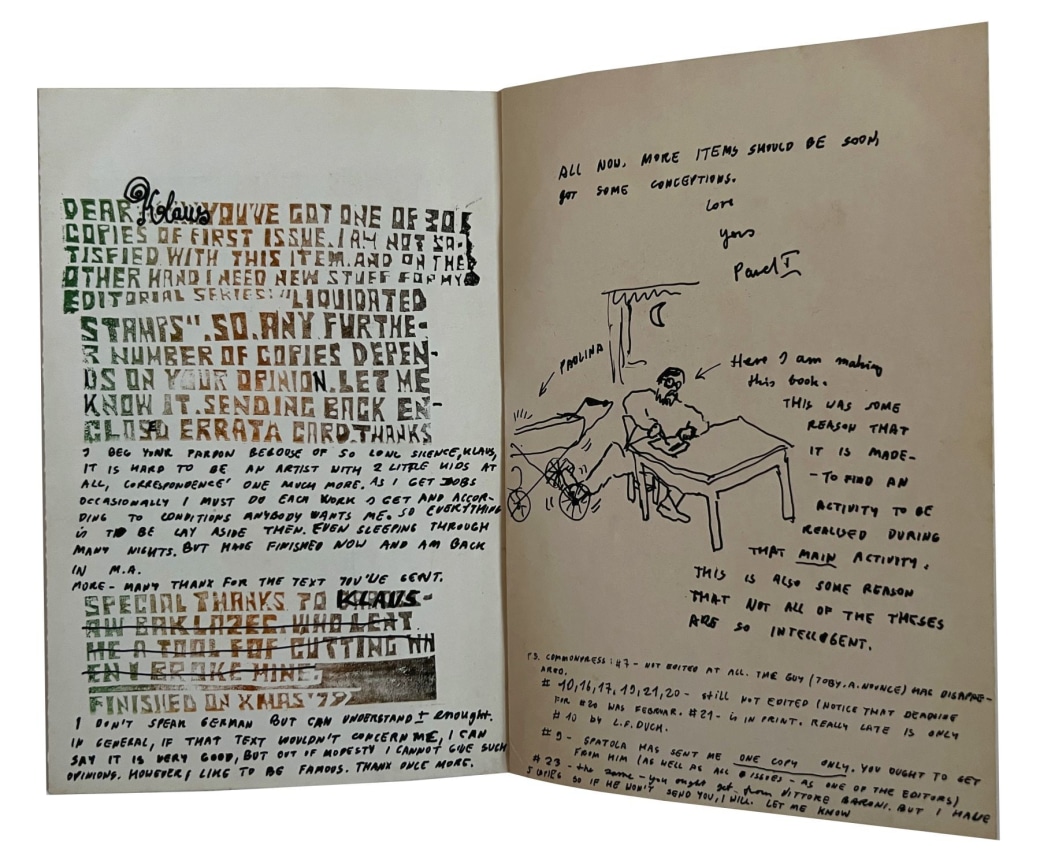 DEAR Klaus YOU'VE GOT ONE OF 30
COPIES OF FIRST ISSUE. I AM NOT SA-
TISFIED WITH THIS ITEM. AND ON THE
OTHER HAND I NEED NEW STUFF FOR MY
EDITORIAL SERIES: "LIQUIDATED
STAMPS". SO, ANY FURTHE-
R NUMBER OF COPIES DEPEN-
DS ON YOUR OPINION. LET ME
KNOW IT. SENDING BACK EN-
CLOSD ERRATA CARD. THANKS
I BEG YOUR PARDON BECOUSE OF SO LONG SILENCE, KLAUS,
IT IS HARD TO BE AN ARTIST WITH 2 LITTLE KIDS AT
ALL, CORRESPONDENCE' ONE MUCH MORE. AS I GET JOBS
OCCASIONALLY I MUST DO EACH WORK I GET AND ACCOR-
DING TO CONDITIONS ANYBODY WANTS ME. SO EVERYTHING
IS TO BE LAY ASIDE THEN. EVEN SLEEPING THROUGH
MANY NIGHTS. BUT HAVE FINISHED NOW AND AM BACK
IN M.A.
MORE - MANY THANX FOR THE TEXT YOU'VE SENT.
SPECIAL THANKS TO KLAUS -
AW BAKLAZEC. WHO LEAT
ME A TOOL FOF CUTTING WH
EN I BROKE MINE.
FINISHED ON XMAS '79
I DON'T SPEAK GERMAN BUT CAN UNDERSTAND ± enought.
IN GENERAL, IF THAT TEXT WOULDN'T CONCERN ME, I CAN
SAY IT IS VERY GOOD, BUT OUT OF MODESTY I CANNOT GIVE SUCH
OPINIONS. HOWEVER, I LIKE TO BE FAMOUS. THANX ONCE MORE.
ALL NOW. MORE ITEMS SHOULD BE SOON,
GOT SOME CONCEPTIONS.
Love
yours
Pawel
PAULINA
Here I am making
this book.
THIS WAS SOME
REASON THAT
IT IS MADE-
-TO FIND AN
ACTIVITY TO BE
REALISED DURING
THAT MAIN ACTIVITY.
THIS IS ALSO SOME REASON
THAT NOT ALL OF THE THESES
ARE SO INTELLIGENT.
P.S. COMMONPRESS: #7 - NOT EDITED AT ALL. THE GUY (TOBY.A.NOUNCE) HAS DISAPPE-
ARED.
# 10,16,17,19,21,20 - still NOT EDITED (NOTICE THAT DEADLINE
FOR #20 WAS FEBRUAR. #21 - IS IN PRINT. REALLY LATE IS ONLY
# 10 by L.F. DUCH.
# 9 - SPATOLA HAS SENT ME ONE COPY ONLY. YOU OUGHT TO GET
FROM HIM (AS WELL AS ALL ISSUES - AS ONE OF THE EDITORS)
# 23 - the same - you ought get from VITTORE BARONI. BUT I HAVE
5 COPIES SO IF HE WON'T SEND YOU, I WILL. LET ME KNOW